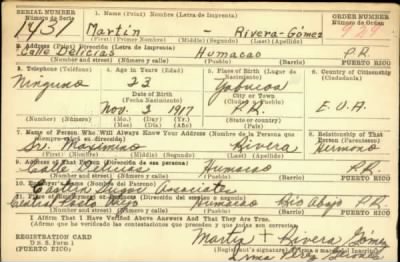 SERIAL NUMBER 1. Name (Print) Nombre (Letra de Imprenta) ORDER NUMBER
Número de Serie Número de Orden
1431 Martín - Rivera-Gómez 929
(First) (Primer Nombre) (Middle) (Segundo) (Last) (Apellido)
2. Address (Print) Dirección (Letra de Imprenta)
Calle Delicias Humacao P.R.
(Number and street) (Número y calle) (Town) (Pueblo) PUERTO RICO
3. Telephone (Teléfono) 4. Age in Years (Edad) 5. Place of Birth (Lugar de Nacimiento) 6. Country of Citizenship (Ciudadanía)
Ninguno 23 Yabucoa
Date of Birth City or Town
(Fecha Nacimiento) (Ciudad o Pueblo)
Nov. 3 1917 P.R. E.U.A.
(Number) (Número) (Mo.) (Day) (Yr.) (State or country)
(Mes) (Día) (Año) (Estado o país)
7. Name of Person Who Will Always Know Your Address (Nombre de la Persona que siempre sabrá su dirección) 8. Relationship of That Person (Parentesco)
Sr. Maximino Rivera Hermano
(First) (Primer Nombre) (Middle) (Segundo) (Last) (Apellido)
9. Address of That Person (Dirección de esa persona)
Calle Delicias Humacao P.R.
(Number and street) (Número y calle) (Town) (Pueblo) PUERTO RICO
10. Employer's Name (Nombre del Patrono)
Eastern Sugar Associates
11. Place of Employment
Central Pasto Viejo Humacao Río Abajo P.R.
(Number and street) (Número y calle) (Town) (Pueblo) PUERTO RICO
I Affirm That I Have Verified Above Answers And That They Are True.
(Afirmo que he verificado las contestaciones que preceden y que todas son correctas)
REGISTRATION CARD Martín + Rivera Gómez
D. S. S. Form 1
(Puerto Rico)